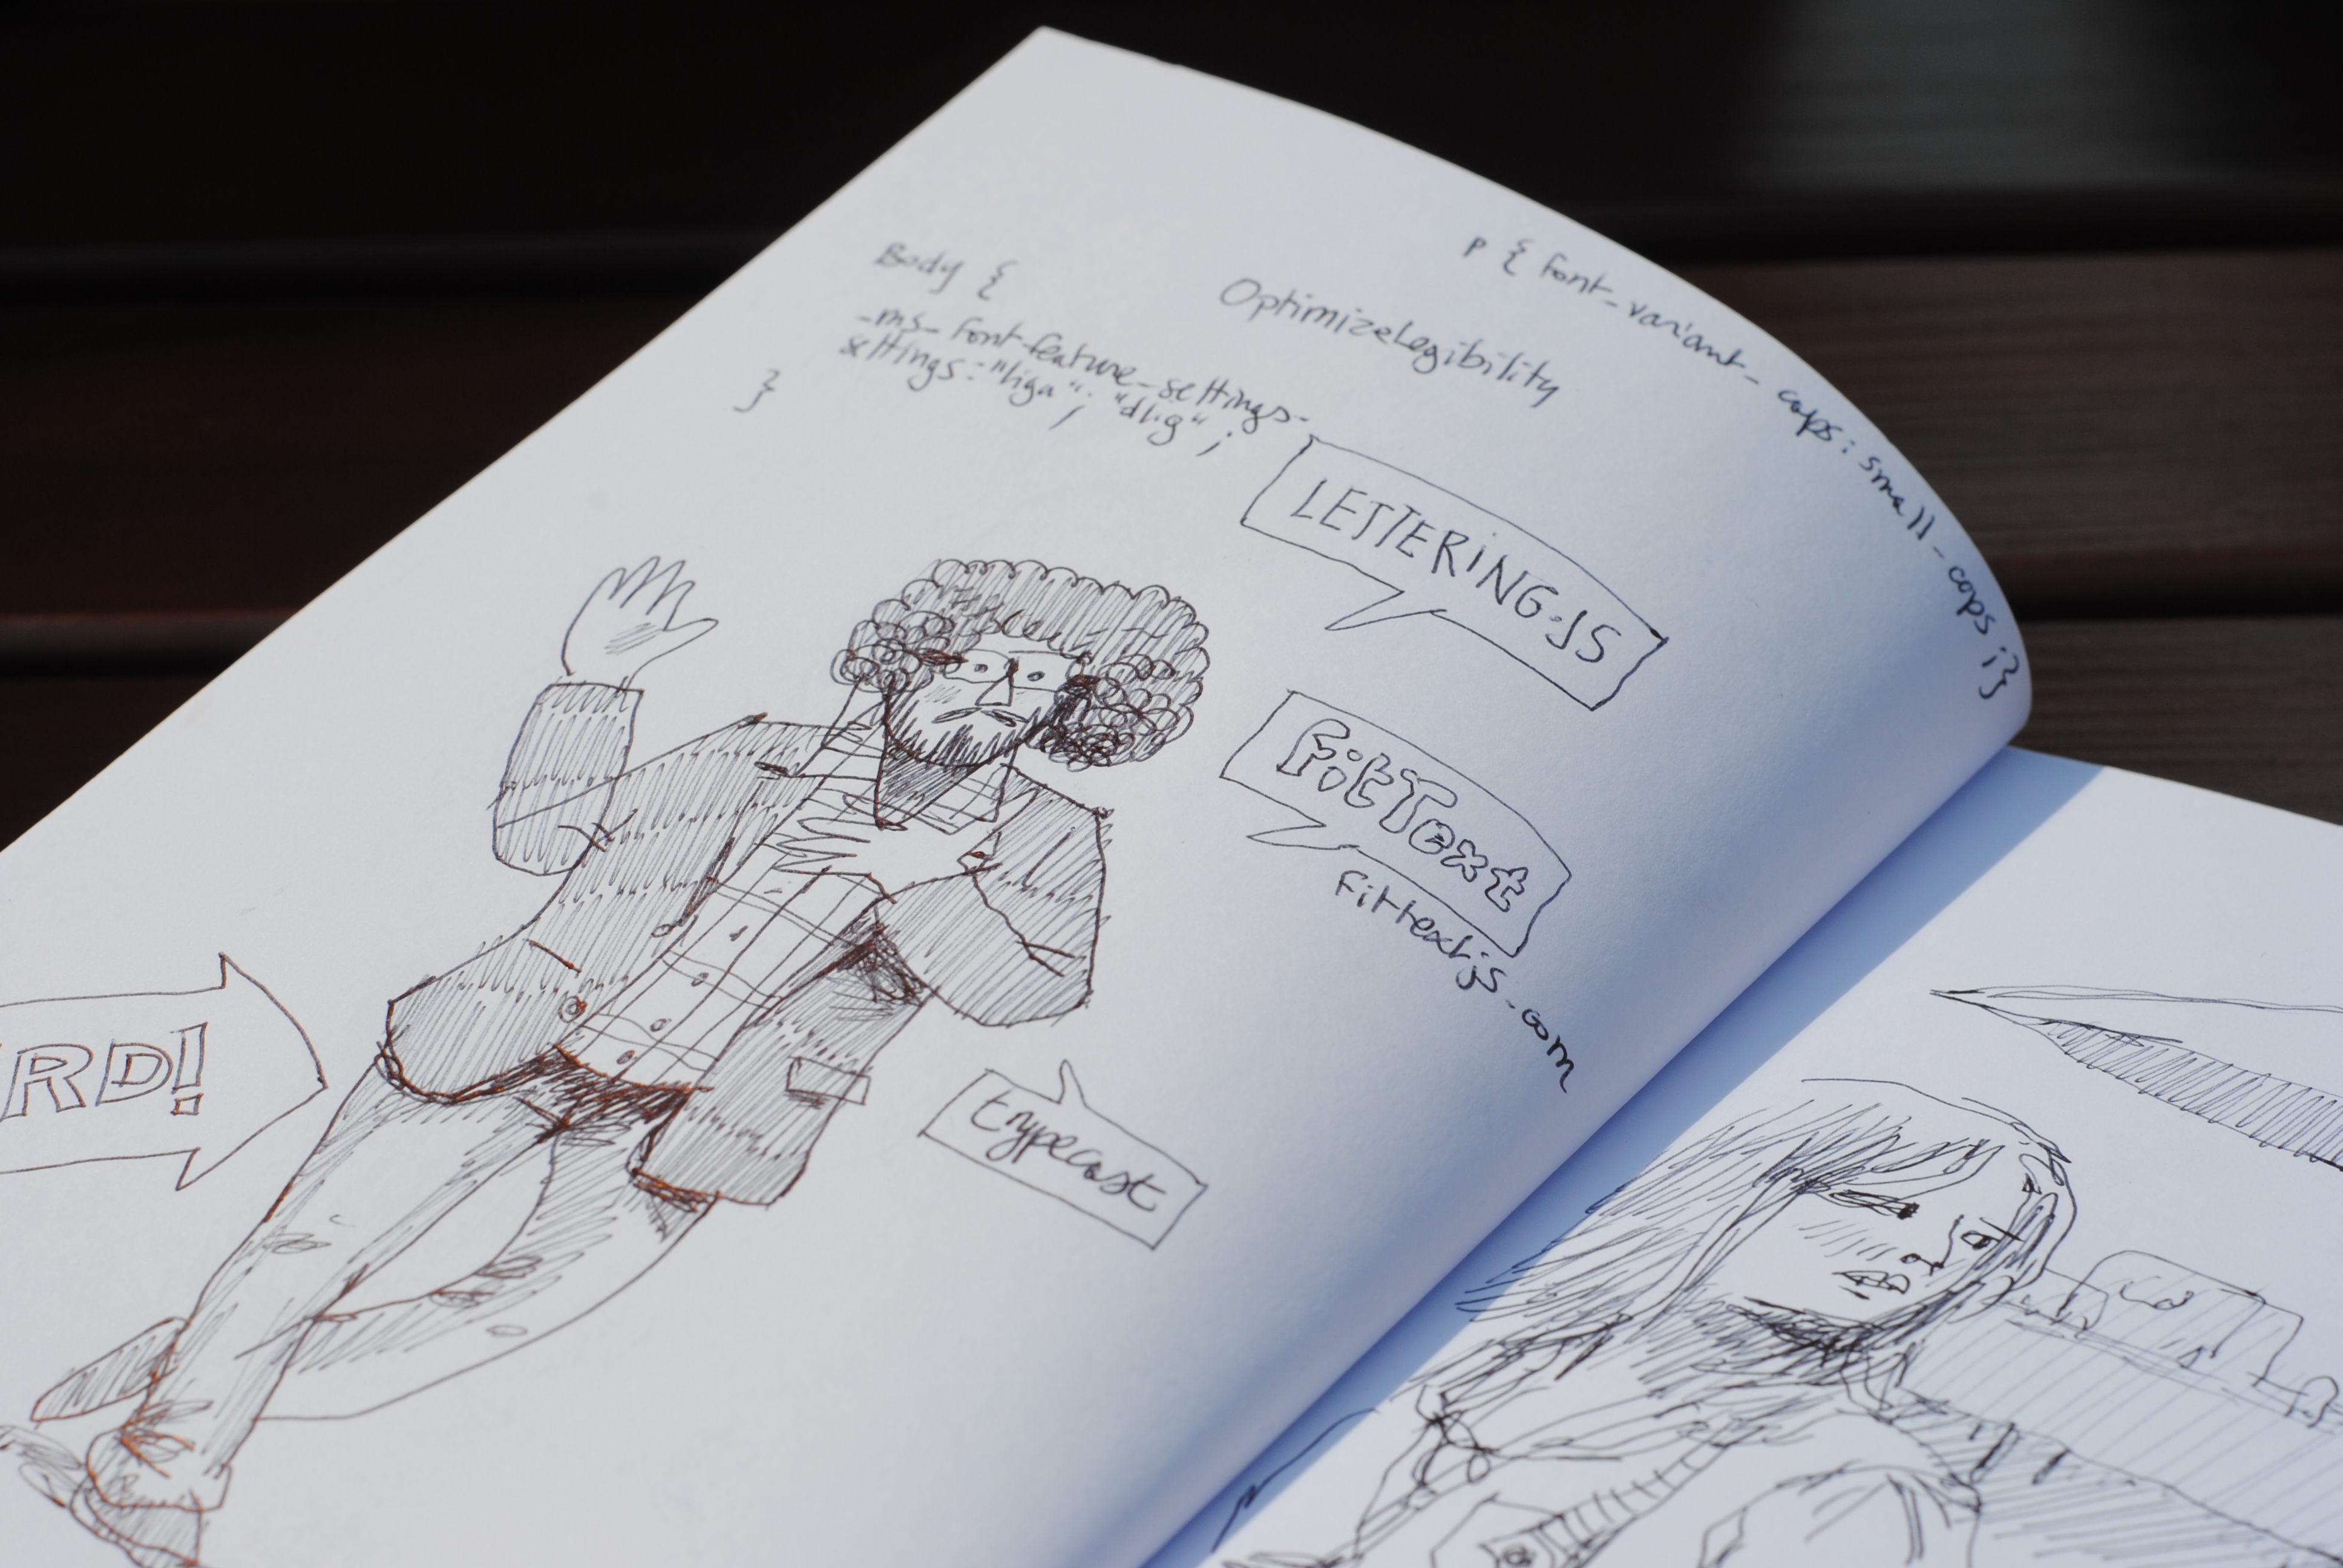 p { font-variant-caps: small-caps ;}
OptimizeLegibility
Body {
-ms-font-feature-settings-
settings: "liga", "dlig" ;
}
LETTERING.JS
FitText
Fittextjs.com
RD!
typecast